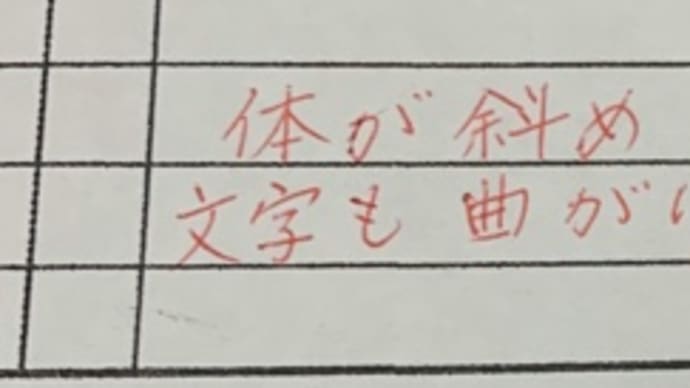 体が斜め
文字も曲が